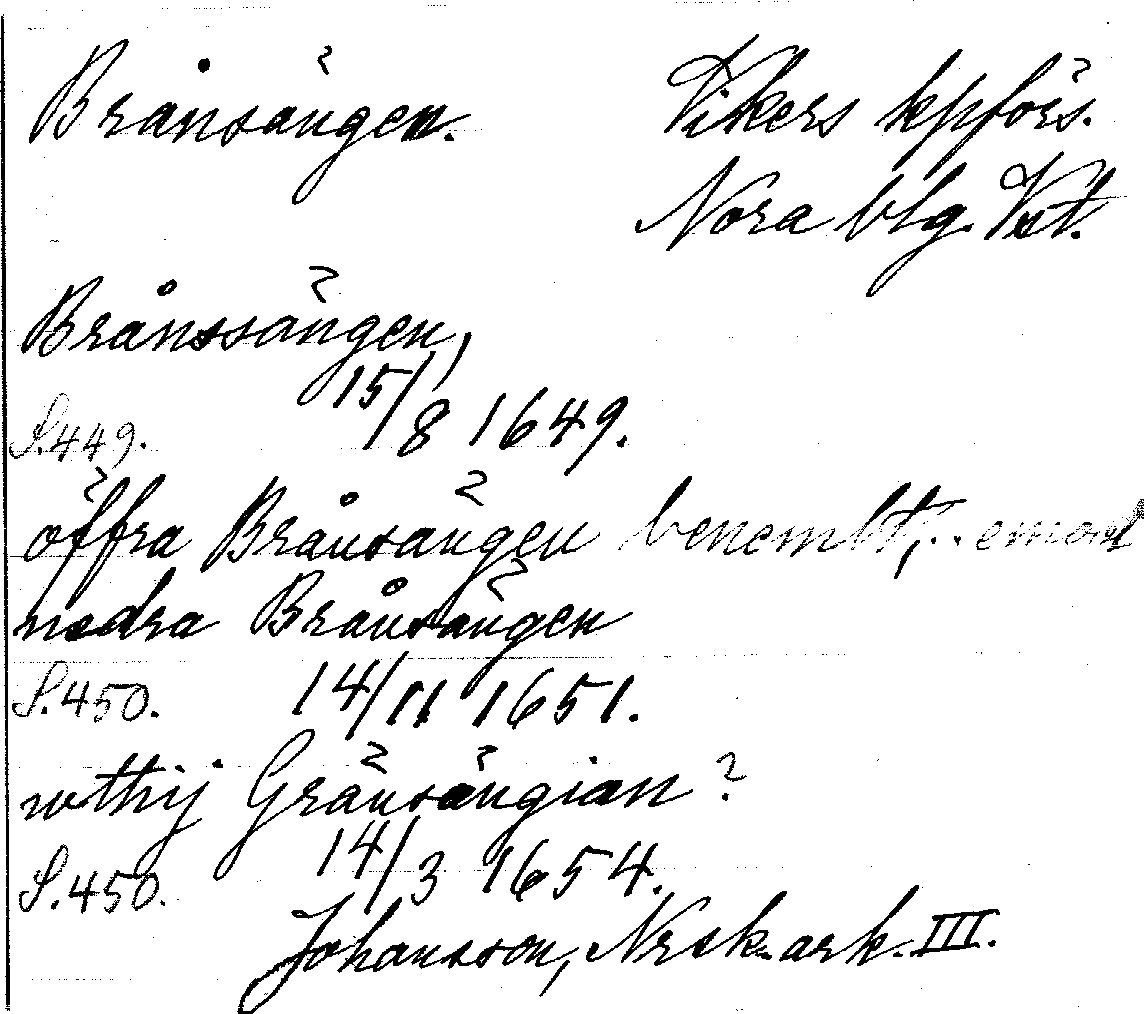 Brånsängen.
Vikers kpförs.
Nora blg. Vst.
Brånssängen,
15/8 1649.
S.449.
öffra Brånsängen benembt, .. emoot
nedra Brånsängen
S.450. 14/11 1651.
wthij Gränsängian?
14/3 1654.
S.450.
Johansson, Nrsk. ark. III.